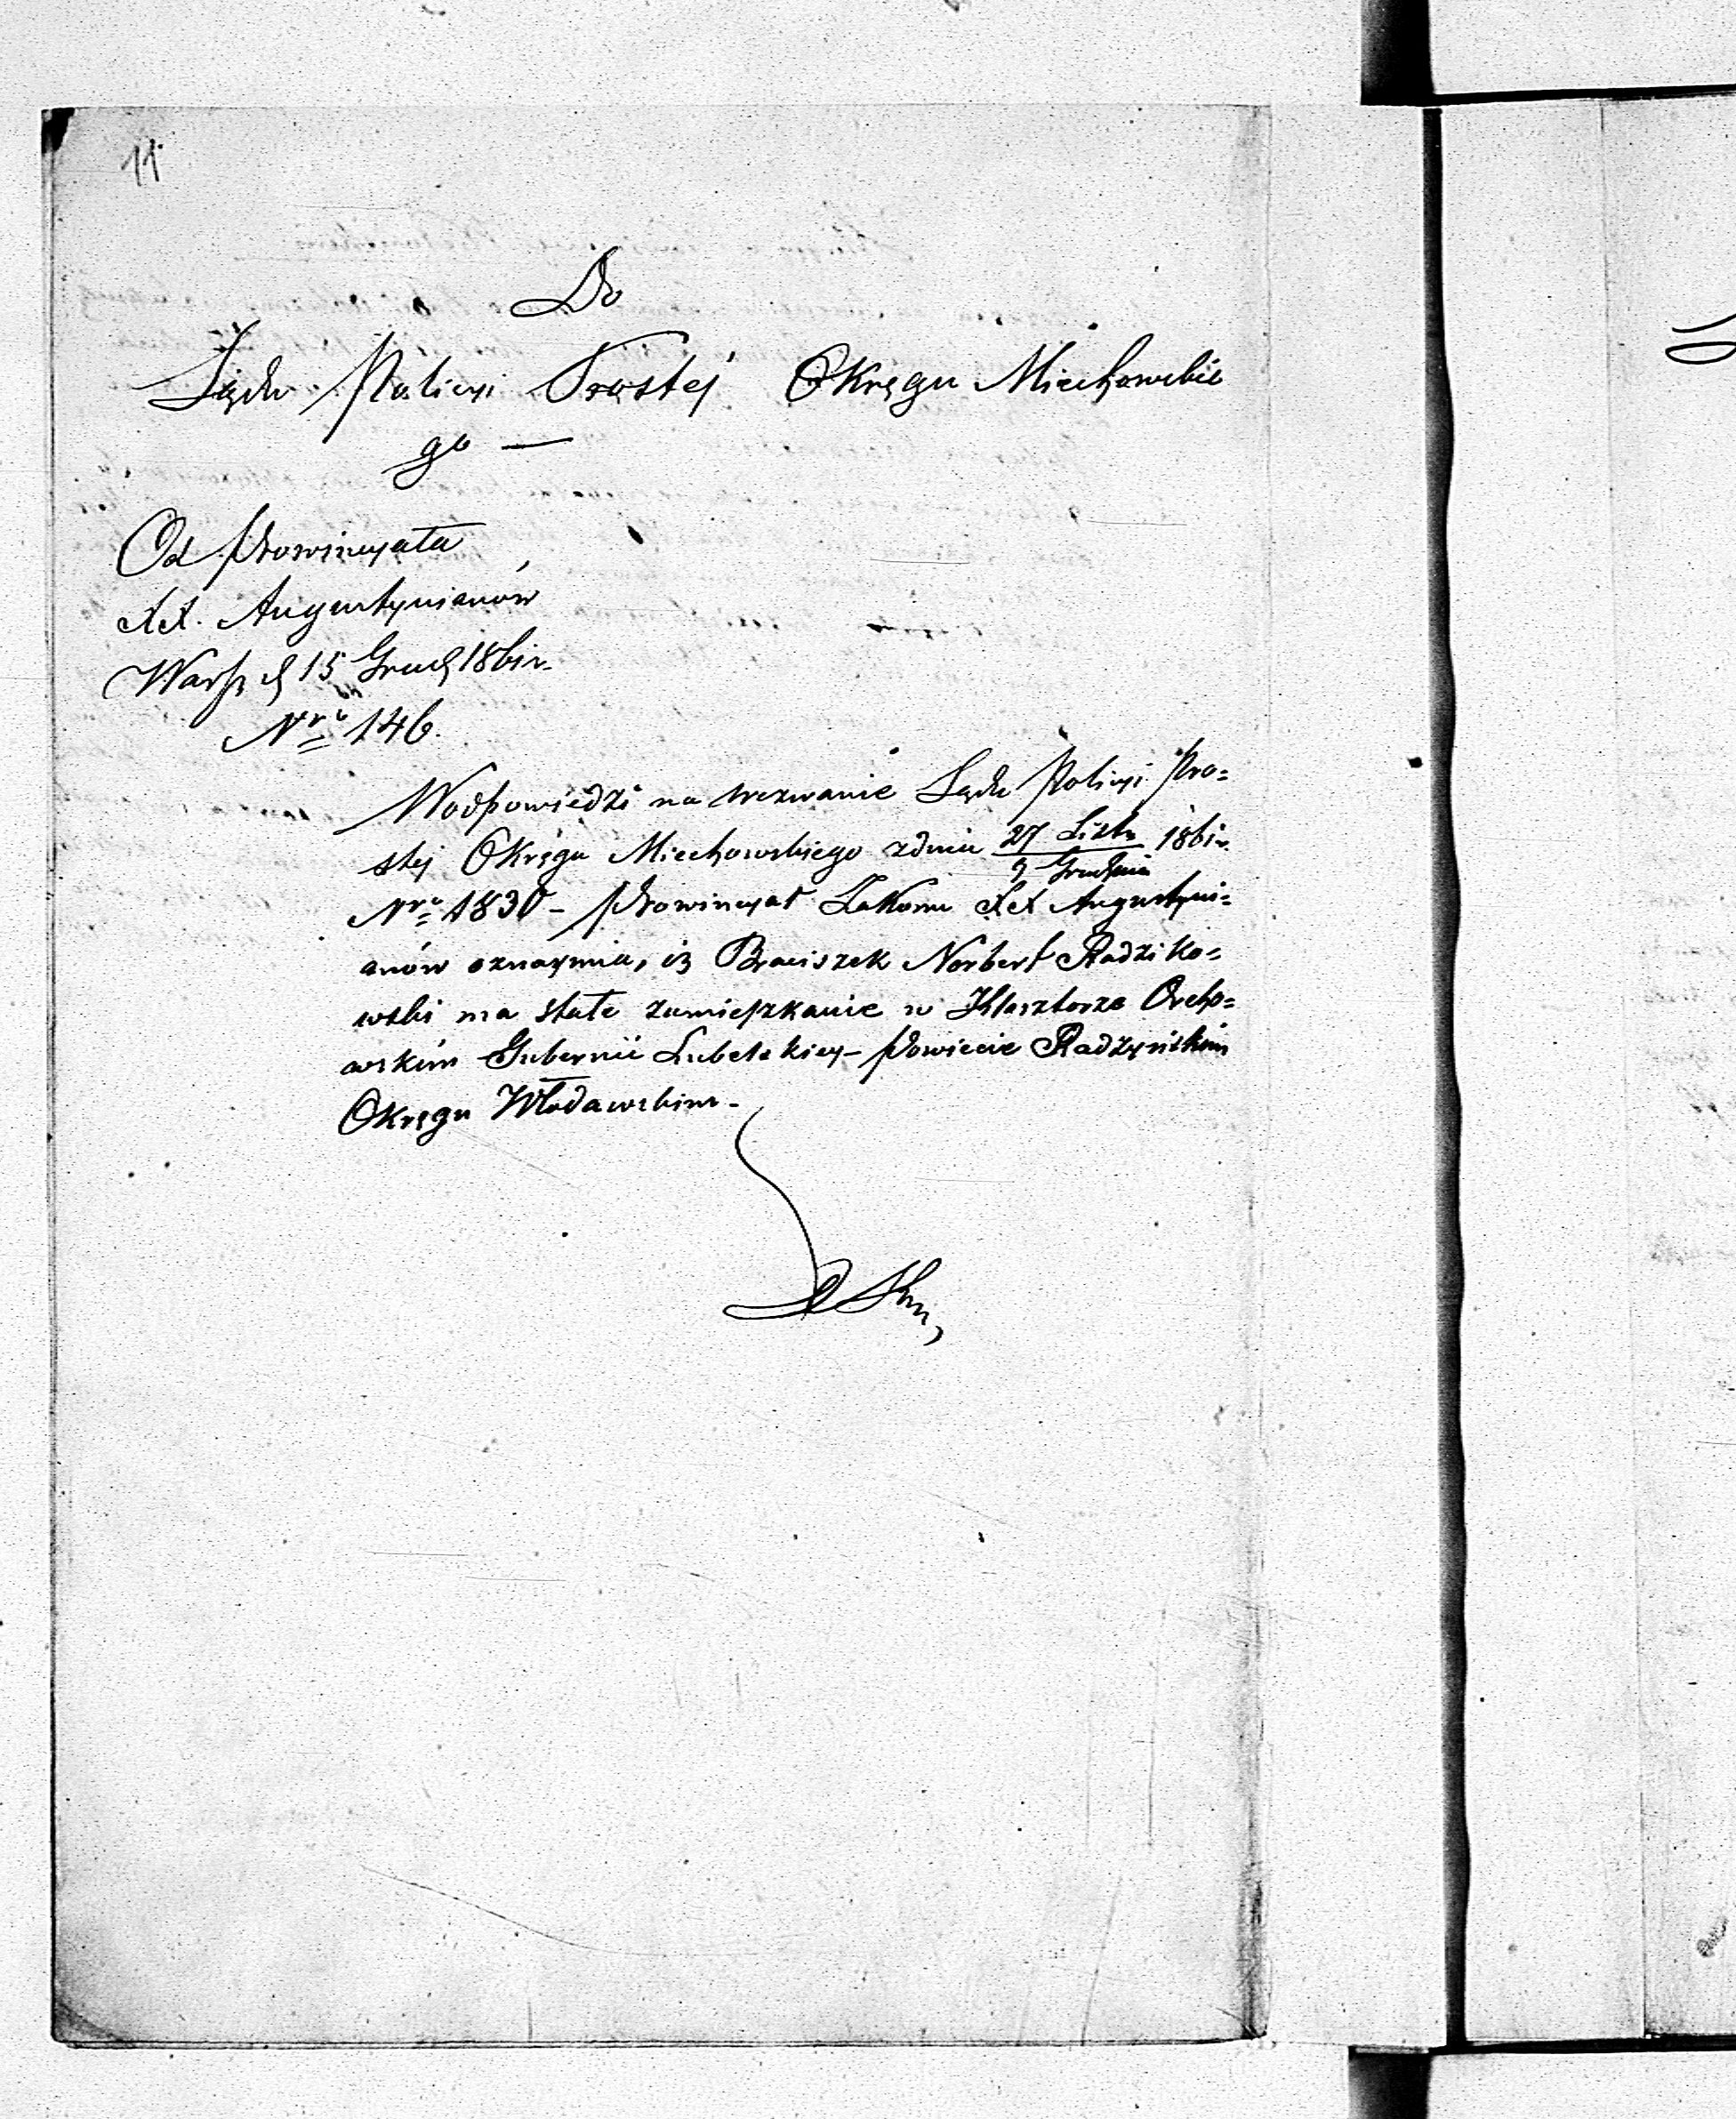 11
Do
Sądu Policyi Prostéj Okręgu Miechowskie
go —
Od Prowincyała
XX. Augustynianów
Warsz d 15 Grud 1861 r.
Nro 146.
W odpowiedzi na wezwanie Sądu Policyi Pro=
stéj Okręgu Miechowskiego z dnia 27 Listo / 9 Grudnia 1861 r.
Nro 1830 – Prowincyał Zakonu XX Augustyni=
anów oznaymia, iż Braciszek Norbert Radziko=
wski ma stałe zamieszkanie w Klasztorze Orcho=
wskim Gubernii Lubelskiey – Powiecie Radzyńskim
Okręgu Włodawskim –